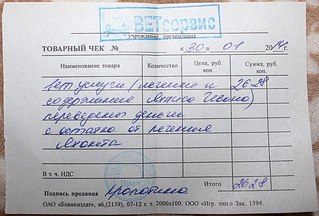 ВЕТсервис
учреждение, организация
ТОВАРНЫЙ ЧЕК № «30» 01 2014г.
Наименование товара Количество Цена, руб. коп. Сумма, руб. коп.
Вет услуги (лечение и 2628
содержание
переведены деньги
с остатка от лечения
Яхонта
В т. ч. НДС
Итого 2628
Подпись продавца
ОАО «Бланкиздат», з6.(2139), 07-12 г. т. 2000х100. ООО «Игр. тип.» Зак. 1594.